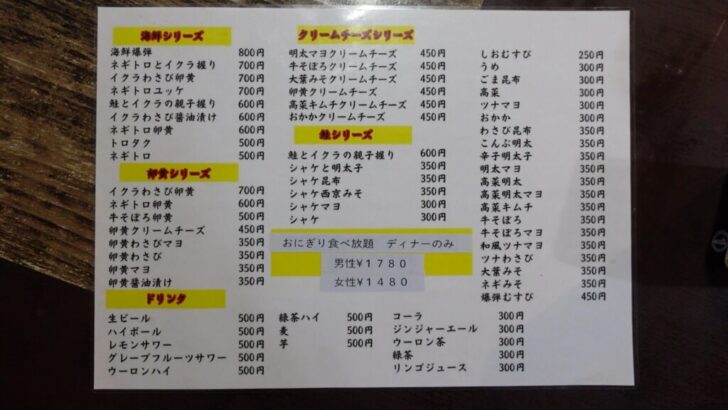 海鮮シリーズ
海鮮爆弾 800円
ネギトロとイクラ握り 700円
イクラわさび卵黄 700円
ネギトロユッケ 700円
鮭とイクラの親子握り 600円
イクラわさび醤油漬け 600円
ネギトロ卵黄 600円
トロタク 500円
ネギトロ 500円
卵黄シリーズ
イクラわさび卵黄 700円
ネギトロ卵黄 600円
牛そぼろ卵黄 500円
卵黄クリームチーズ 450円
卵黄わさびマヨ 350円
卵黄わさび 350円
卵黄マヨ 350円
卵黄醤油漬け 350円
クリームチーズシリーズ
明太マヨクリームチーズ 450円
牛そぼろクリームチーズ 450円
大葉みそクリームチーズ 450円
卵黄クリームチーズ 450円
高菜キムチクリームチーズ 450円
おかかクリームチーズ 450円
鮭シリーズ
鮭とイクラの親子握り 600円
シャケと明太子 350円
シャケ昆布 350円
シャケ西京みそ 350円
シャケマヨ 300円
シャケ 300円
おにぎり食べ放題 ディナーのみ
男性¥1780
女性¥1480
しおむすび 250円
うめ 300円
ごま昆布 300円
高菜 300円
ツナマヨ 300円
おかか 300円
わさび昆布 350円
こんぶ明太 350円
辛子明太子 350円
明太マヨ 350円
高菜明太 350円
高菜明太マヨ 350円
高菜キムチ 350円
牛そぼろ 350円
牛そぼろマヨ 350円
和風ツナマヨ 350円
ツナわさび 350円
大葉みそ 350円
ネギみそ 350円
爆弾むすび 450円
ドリンク
生ビール 500円
ハイボール 500円
レモンサワー 500円
グレープフルーツサワー 500円
ウーロンハイ 500円
緑茶ハイ 500円
麦 500円
芋 500円
コーラ 300円
ジンジャーエール 300円
ウーロン茶 300円
緑茶 300円
リンゴジュース 300円